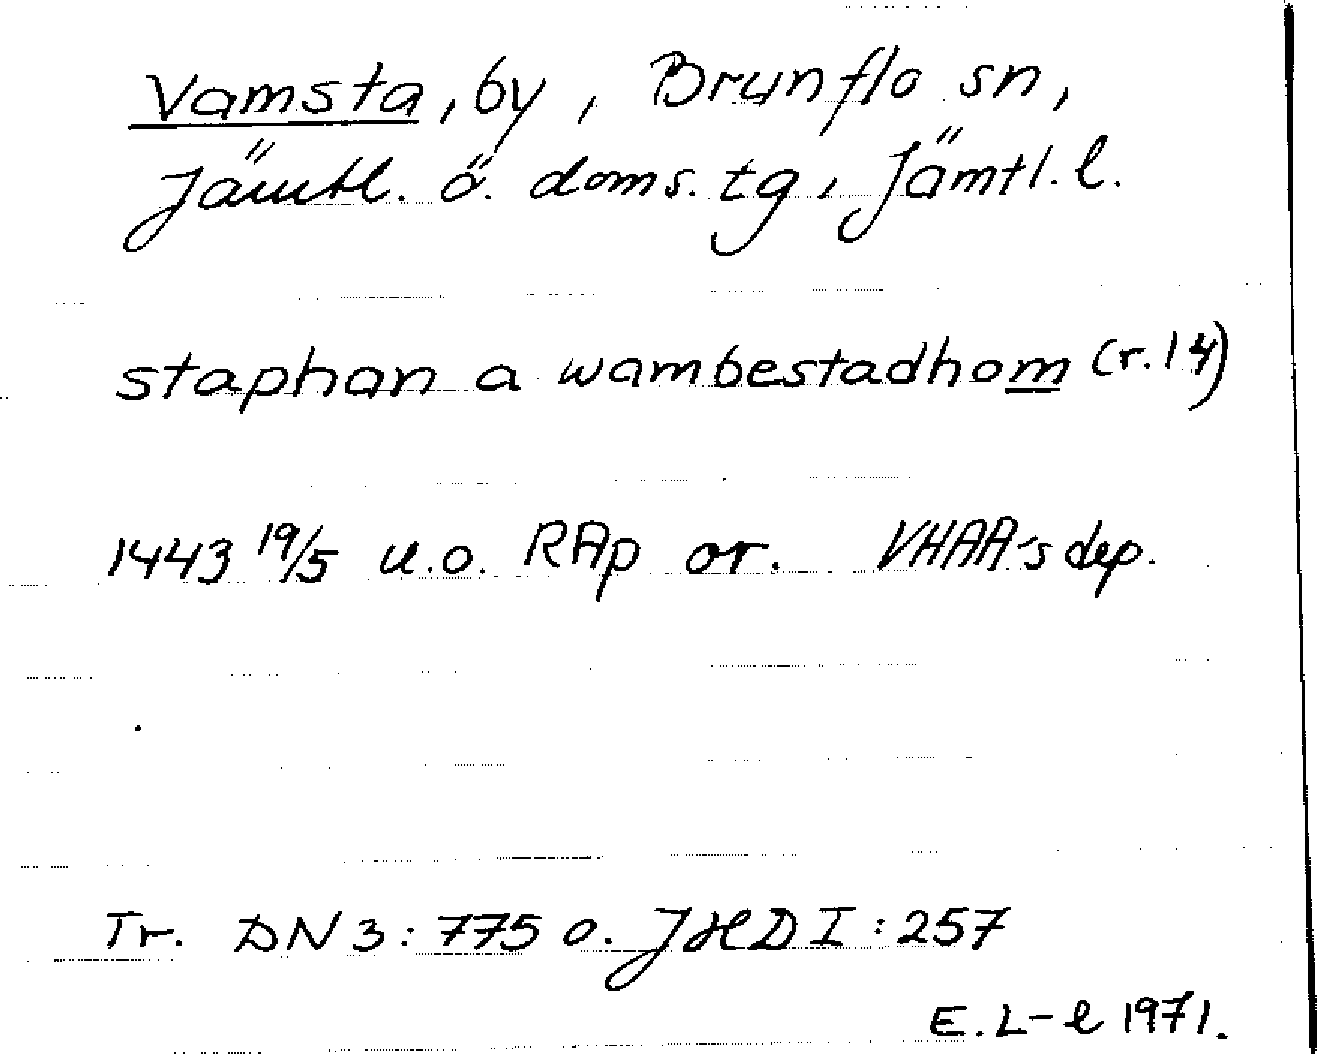 Vamsta, by, Brunflo sn,
Jämtl. ö. doms. tg, Jämtl. l.
staphan a wambestadhom (r. 14)
1443 19/5 u.o. RAp or. VHAA-s dep.
Tr. DN 3: 775 o. JHD I: 257
E. L-l 1971.